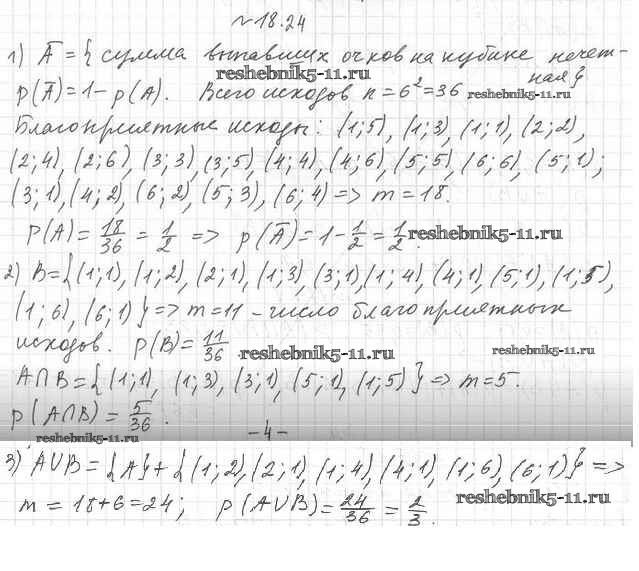 №18.24
1) Ā = { сумма выпавших очков на кубике нечет-
ная}
reshebnik5-11.ru
p(Ā)=1-p(A). Всего исходов n=6²=36 reshebnik5-11.ru
Благоприятные исходы: (1;5), (1;3), (1;1), (2;2),
(2;4), (2;6), (3;3), (3;5), (4;4), (4;6), (5;5), (6;6), (5;1);
(3;1), (4;2), (6;2), (5;3), (6;4) => m=18.
P(A)= 18/36 = 1/2 => p(Ā)=1-1/2=1/2. reshebnik5-11.ru
2) B={(1;1), (1;2), (2;1), (1;3), (3;1), (1;4), (4;1), (5;1), (1;5),
(1;6), (6;1)} => m=11 - число благоприятных
исходов. P(B)= 11/36 reshebnik5-11.ru reshebnik5-11.ru
A∩B={(1;1), (1;3), (3;1), (5;1), (1;5)} => m=5.
p(A∩B)= 5/36.
reshebnik5-11.ru -4-
3) A∪B={A}+{(1;2), (2;1), (1;4), (4;1), (1;6), (6;1)} =>
m=18+6=24; p(A∪B)= 24/36 = 2/3. reshebnik5-11.ru